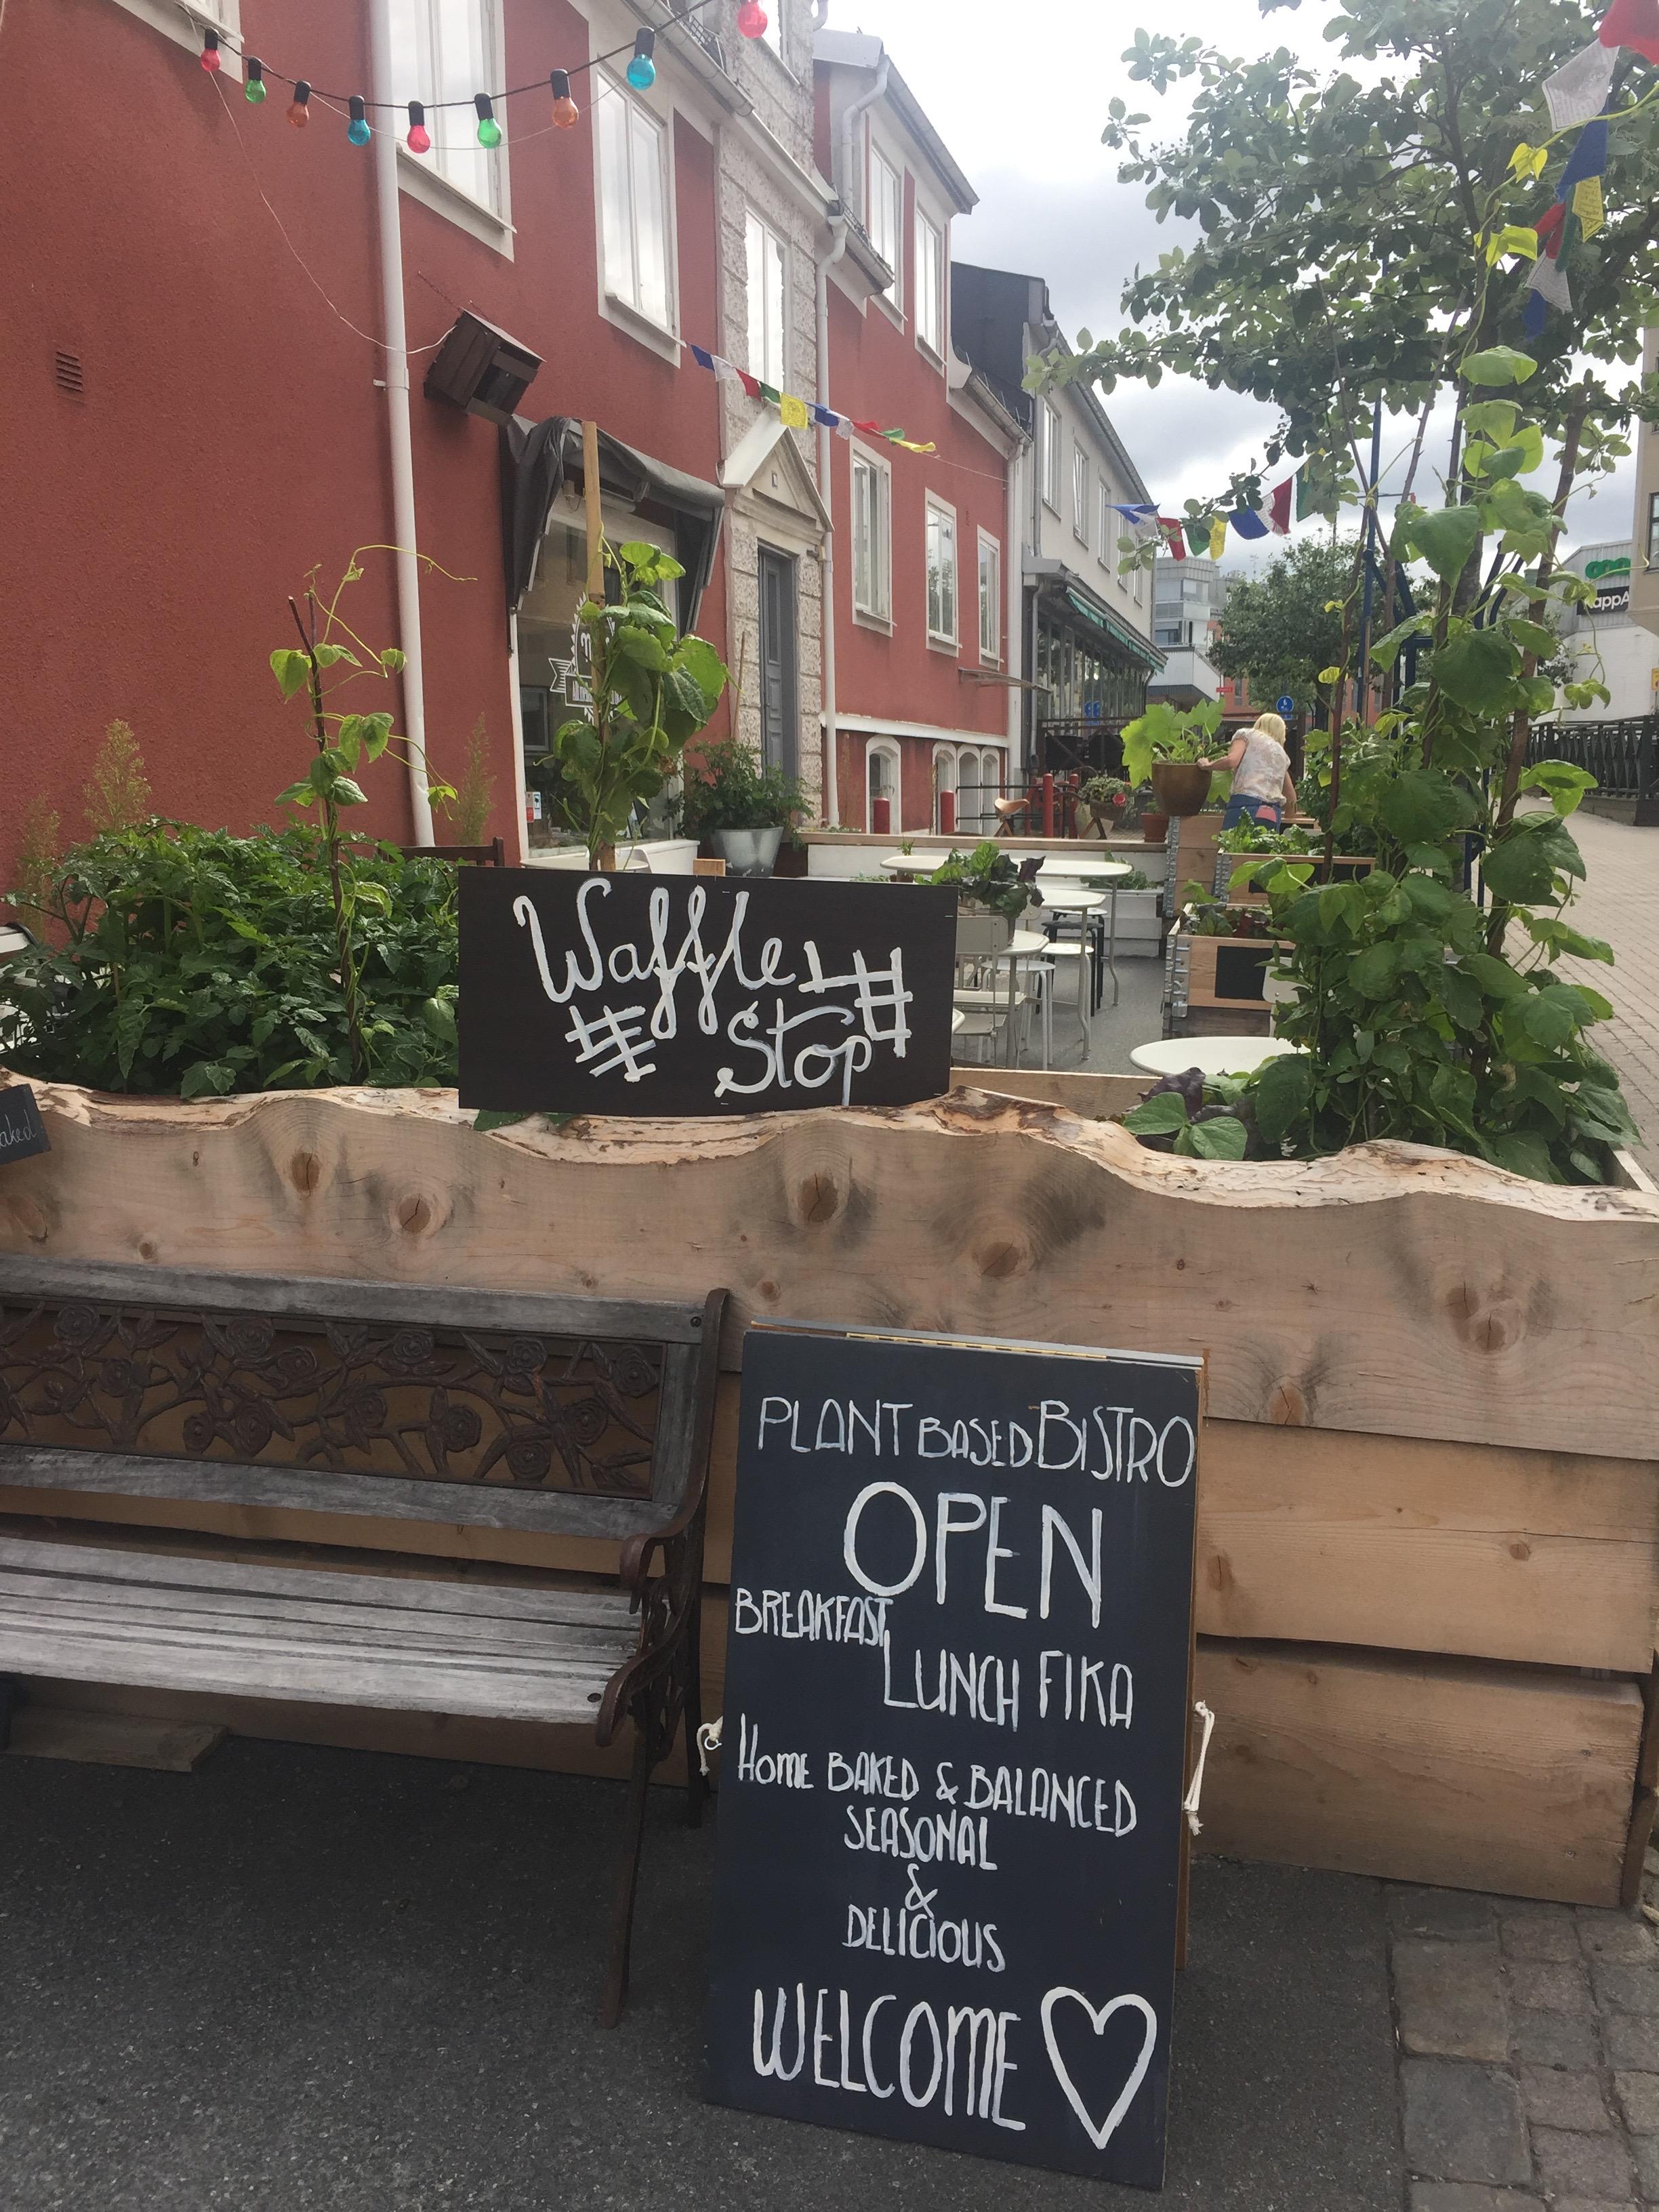 Waffle
Stop
aked
PLANT BASED BISTRO
OPEN
BREAKFAST
LUNCH FIKA
Home BAKED & BALANCED
SEASONAL
&
DELICIOUS
WELCOME
KappA